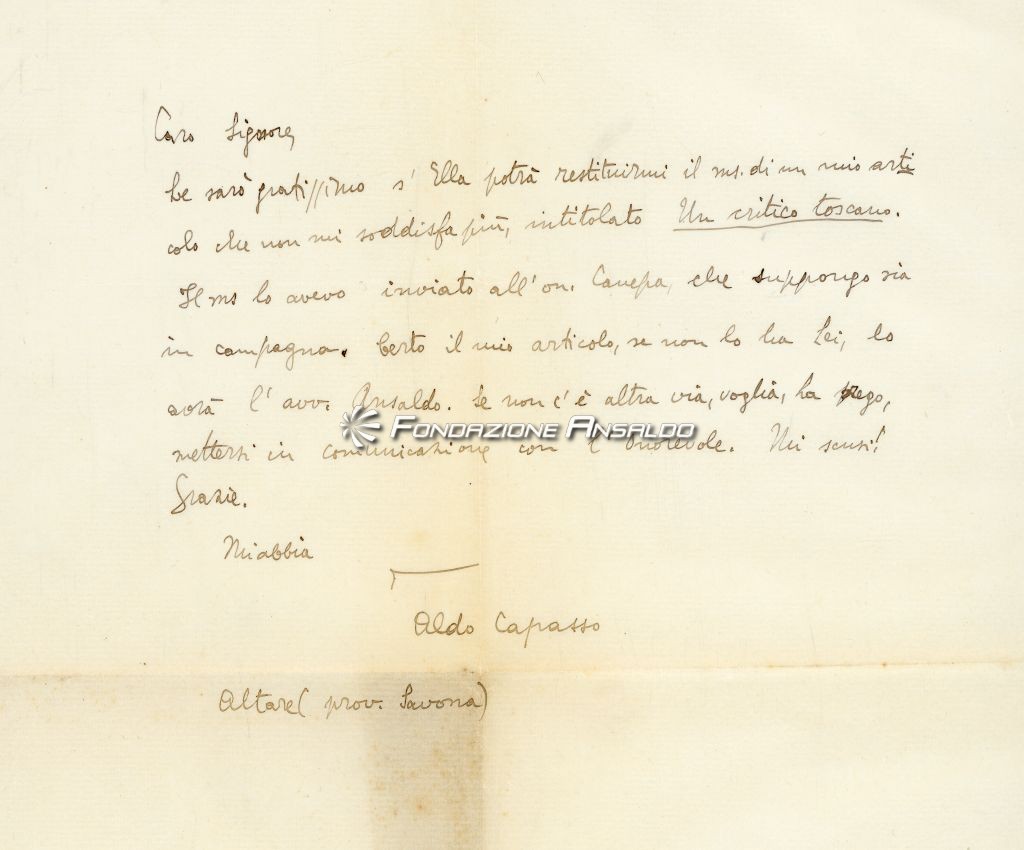 Caro Signore,
Le sarò gratissimo s' Ella potrà restituirmi il ms. di un mio arti
colo che non mi soddisfa più, intitolato Un critico toscano.
Il ms lo avevo inviato all'on. Canepa, che suppongo sia
in campagna. Certo il mio articolo, se non lo ha Lei, lo
avrà l'avv. Ansaldo. Se non c'è altra via, voglia, La prego,
FONDAZIONE ANSALDO
mettersi in comunicazione con l'onorevole. Mi scusi!
Grazie.
Mi abbia
Aldo Capasso
Altare (prov. Savona)